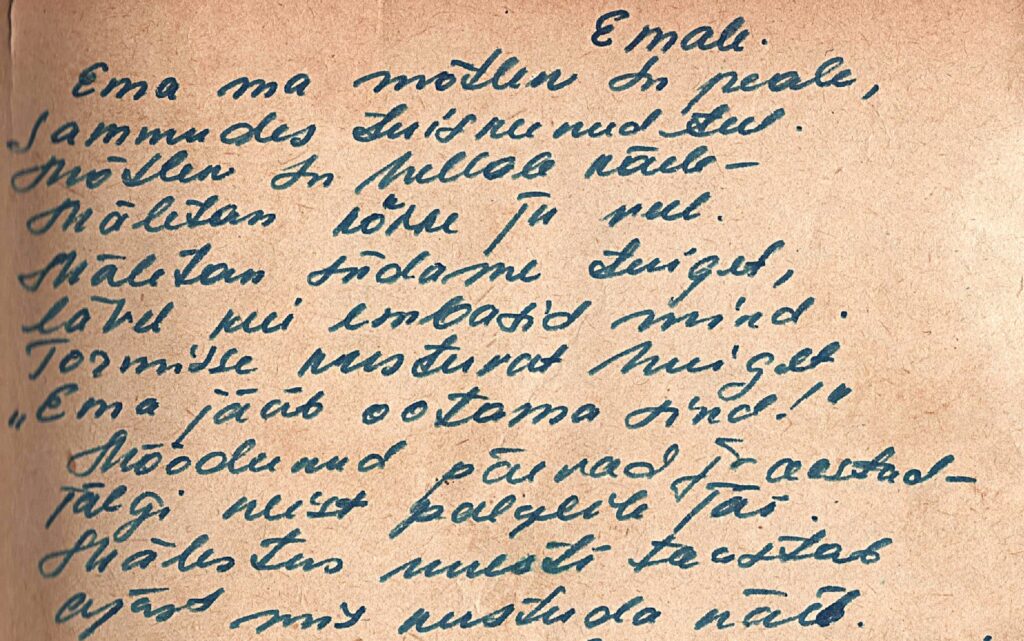 Emale.
Ema ma mõtlen su peale,
sammudes tuisunud teel.
Mõtlen su hellale käele –
Mäletan kõike ju veel.
Mäletan südame tuiget,
lävel kui embasid mind.
Tormisse kustuvat huiget
„Ema jääb ootama sind!"
Möödunud päevad ja aastad –
jälgi neist palgeile jäi.
Mälestus uuesti taastab
ajast mis kustuda näis.